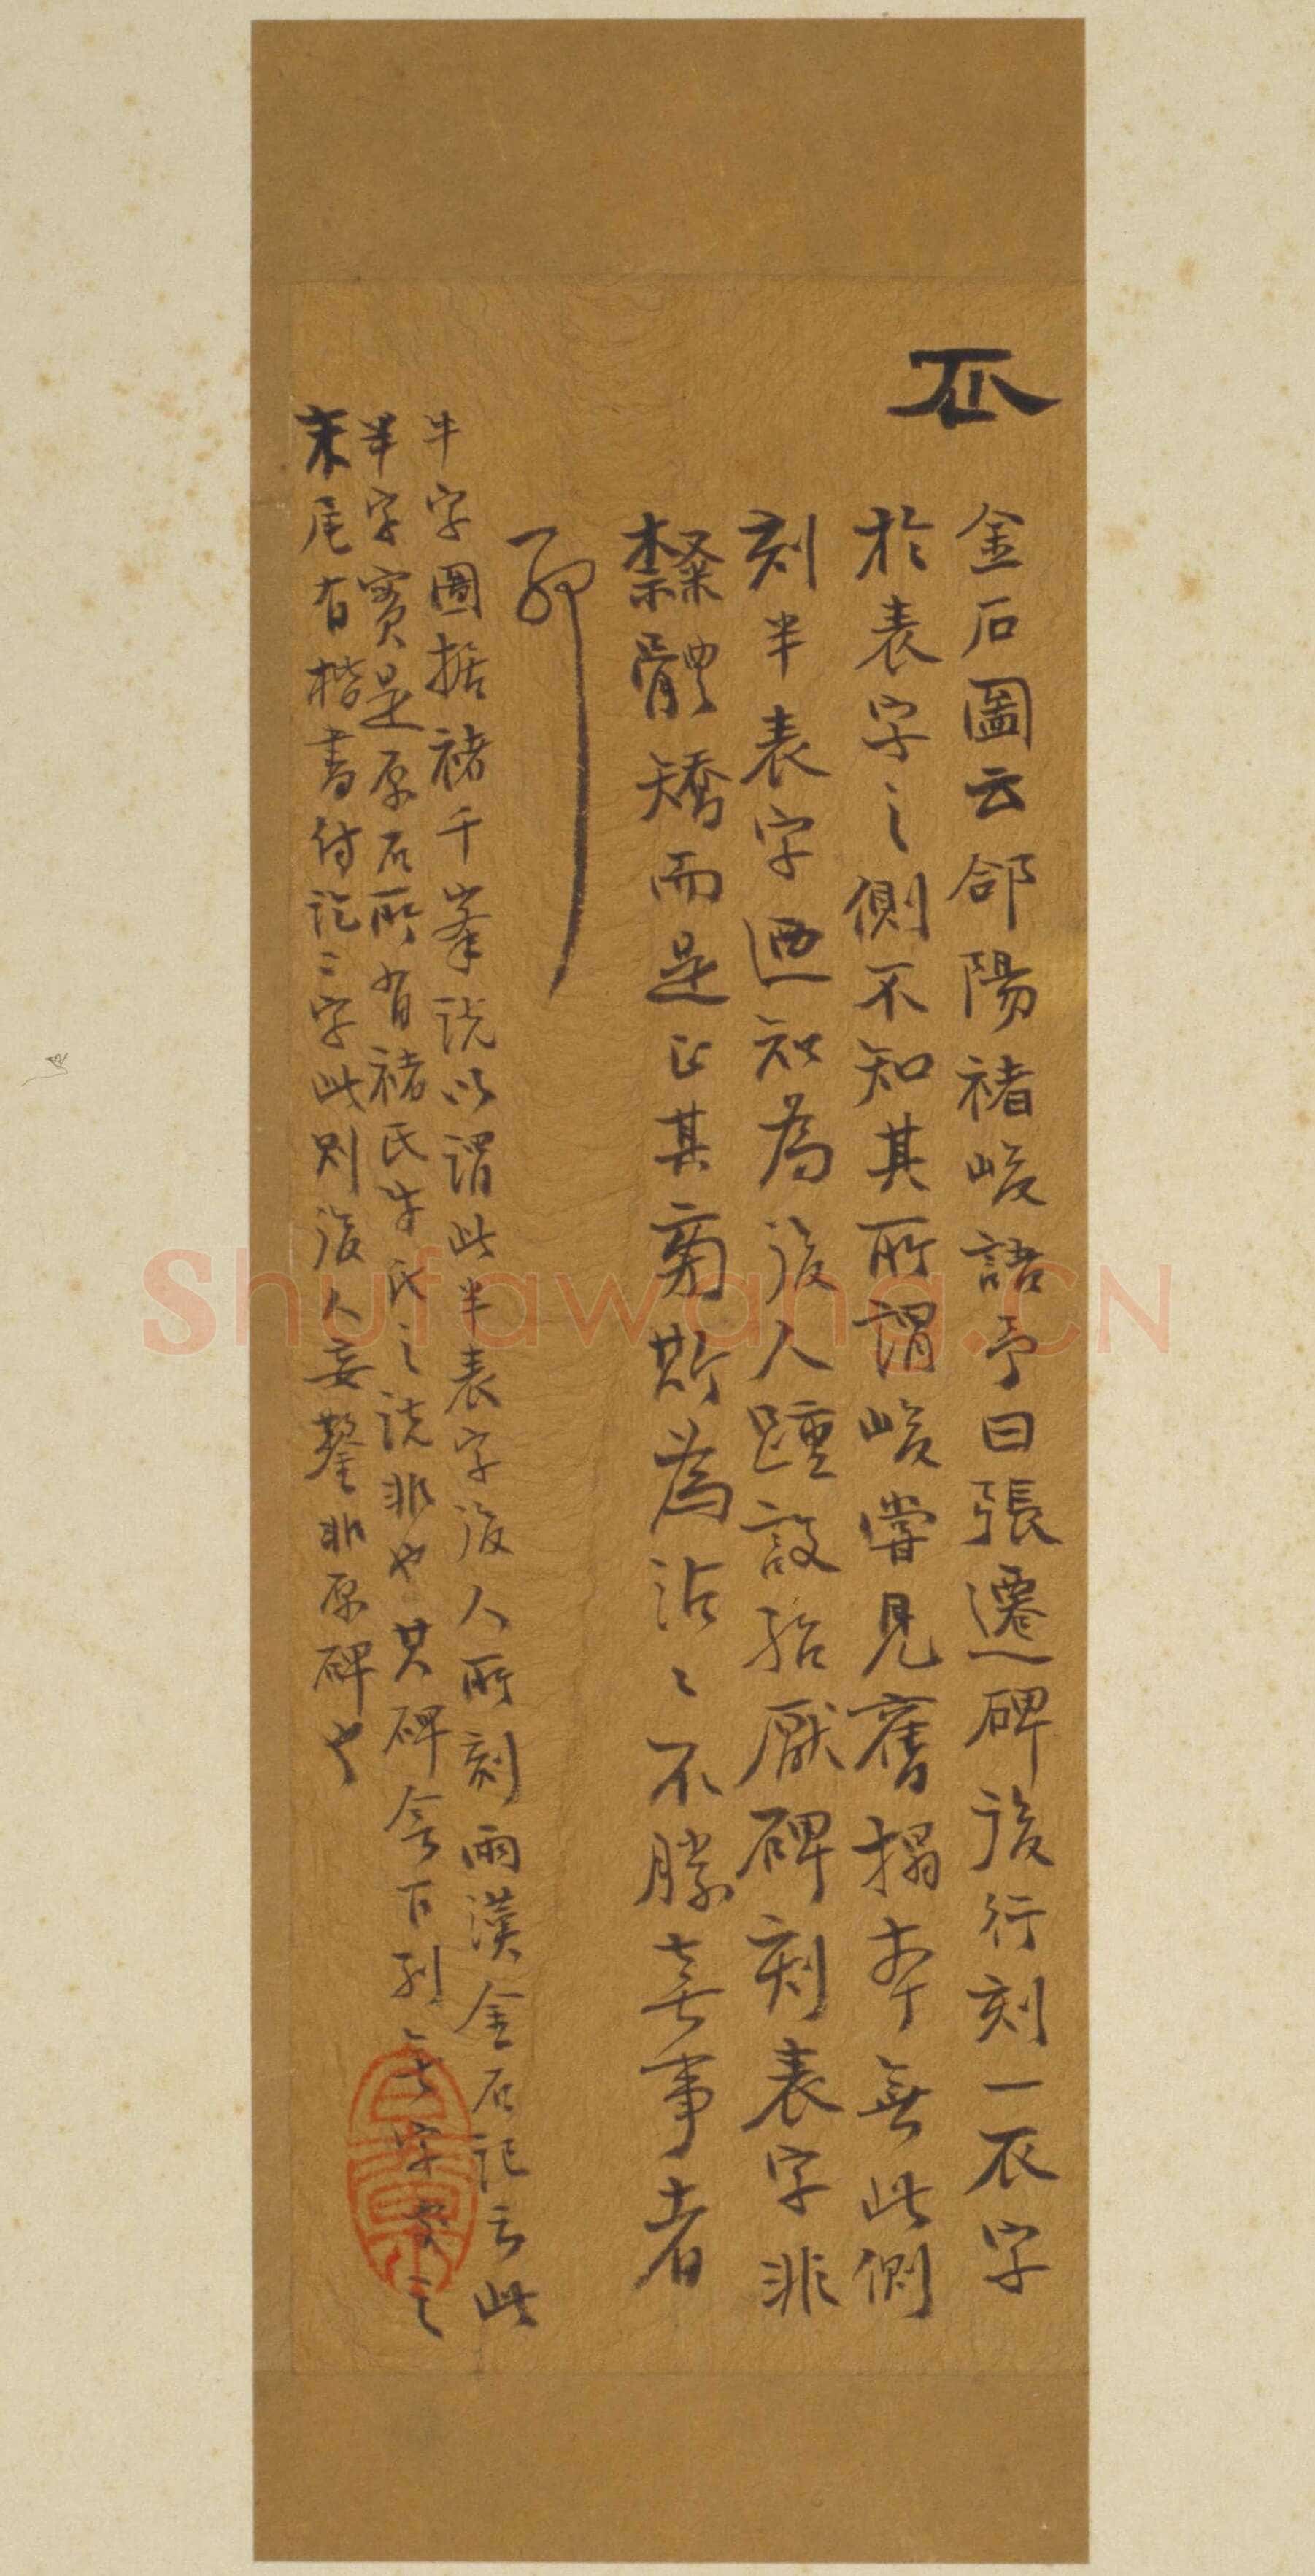 金石圖云郃陽褚峻語予曰張遷碑後行刻一衣字
於表字之側不知其所謂峻嘗見舊搨本無此側
刻半表字迺知為後人踵設殆厭碑刻表字非
體矯而是正其旁斯為沾〻不勝喜事者
耶
牛字圖据褚千峯說以謂此半表字後人所刻兩漢金石記云此
半字實是原石所有褚氏牛氏之說非也其碑
末尾有楷書付訖二字此則後人妄鑿非原碑也
Shufawang.CN